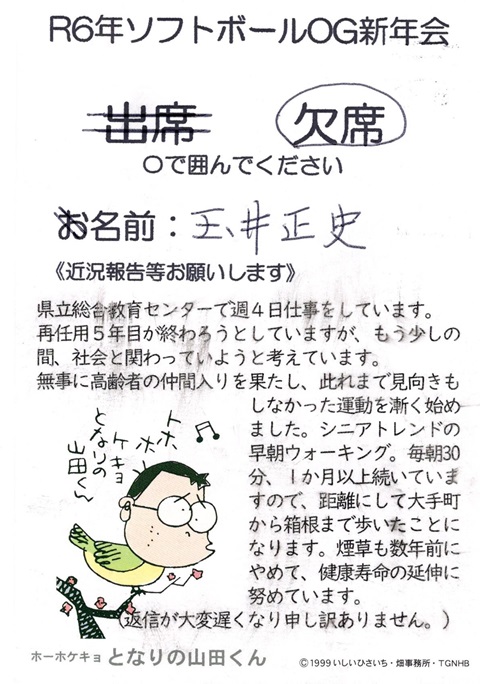 R6年ソフトボールOG新年会
出席 欠席
○で囲んでください
お名前：玉井正史
《近況報告等お願いします》
県立総合教育センターで週４日仕事をしています。
再任用５年目が終わろうとしていますが、もう少しの
間、社会と関わっていようと考えています。
無事に高齢者の仲間入りを果たし、此れまで見向きも
しなかった運動を漸く始め
ました。シニアトレンドの
早朝ウォーキング。毎朝30
分、１か月以上続いていま
すので、距離にして大手町
から箱根まで歩いたことに
なります。煙草も数年前に
やめて、健康寿命の延伸に
努めています。
（返信が大変遅くなり申し訳ありません。）
トホホ
ケキョ
となりの
山田くん
ホーホケキョ となりの山田くん
©1999いしいひさいち・畑事務所・TGNHB